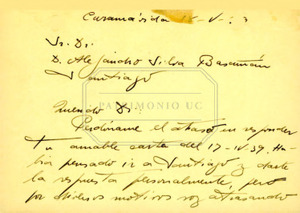 Sr. Dr.
D. Alejandro Silva Bascuñán
Santiago
PATRIMONIO UC
Querido Dr.:
Perdóname el atraso en responder
tu amable carta del 17-IV-39. Ha-
bía pensado ir a Santiago y darte
la respuesta personalmente, pero
por diversos motivos voy atrasando